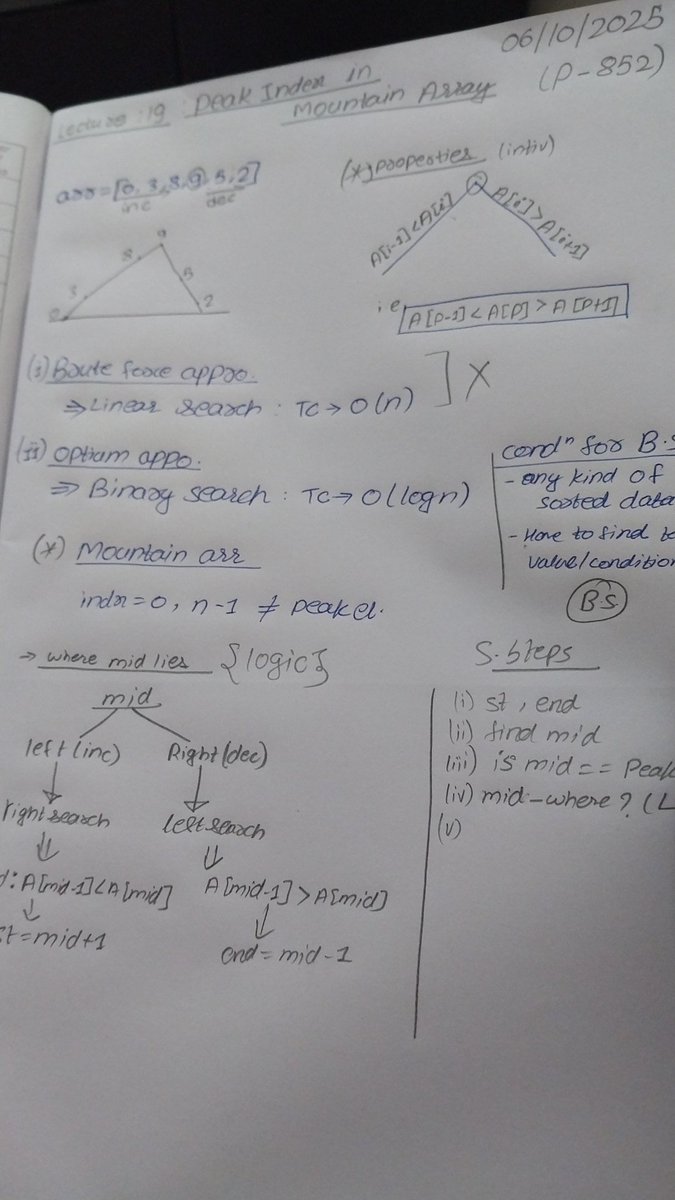 06/10/2025
Lecture : 19 : Peak Index in
Mountain Array
(P-852)
arr = [0, 3, 8, 9, 5, 2]
inc
dec
(*) properties (intiv)
A[i-1] < A[i]
A[i] > A[i+1]
i.e A[P-1] < A[P] > A[P+1]
0
3
8
9
5
2
(i) Brute force appro.
⇒ Linear search : TC → O(n)
] X
(ii) Optium appo.
⇒ Binary search : TC → O(logn)
condⁿ for B.S
- any kind of
sorted data
- Have to find
value/condition
BS
(*) Mountain arr
indx = 0, n-1 ≠ peak el.
→ where mid lies {logic}
mid
left (inc)
Right (dec)
right search
left search
A[mid-1] < A[mid]
A[mid-1] > A[mid]
st = mid+1
end = mid-1
S. Steps
(i) st , end
(ii) find mid
(iii) is mid == Peak
(iv) mid - where? (L
(v)